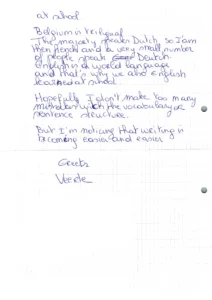 at school
Belgium is trilingual
The majority speaks Dutch, so I am
then people and a very small number
of people speak Deutch.
English is a world language
and that's why we also english
learned at school.
Hopefully I don't make too many
mistakes with the vocabulary or
sentence structure.
But I'm noticing that writing is
becoming easier and easier
Greets
Veerle